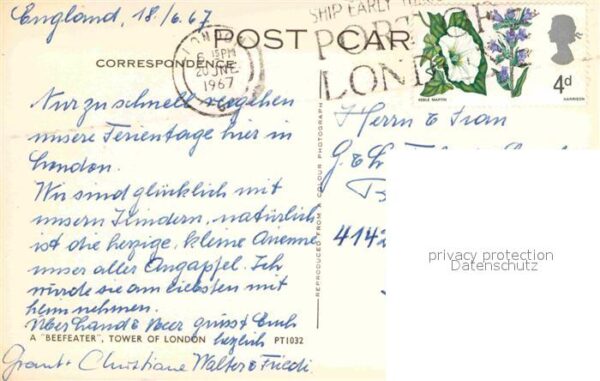 England, 18/6.67
SHIP EARLY
PORT OF
LONDON
LONDON
PM
20 JNE
1967
POST CARD
CORRESPONDENCE
4d
KEBLE MARTIN
HARRISON
Nur zu schnell vergehen
unsere Ferientage hier in
London.
Wir sind glücklich mit
unsern Kindern, natürlich
ist die herzige, kleine
unser aller Augapfel. Ich
würde sie am liebsten mit
heim nehmen.
Über Land & Meer grüsst Euch
herzlich
A "BEEFEATER", TOWER OF LONDON PT1032
Christiane Walter & Friedi
REPRODUCED FROM A COLOUR PHOTOGRAPH
Herrn & Frau
414
privacy protection
Datenschutz